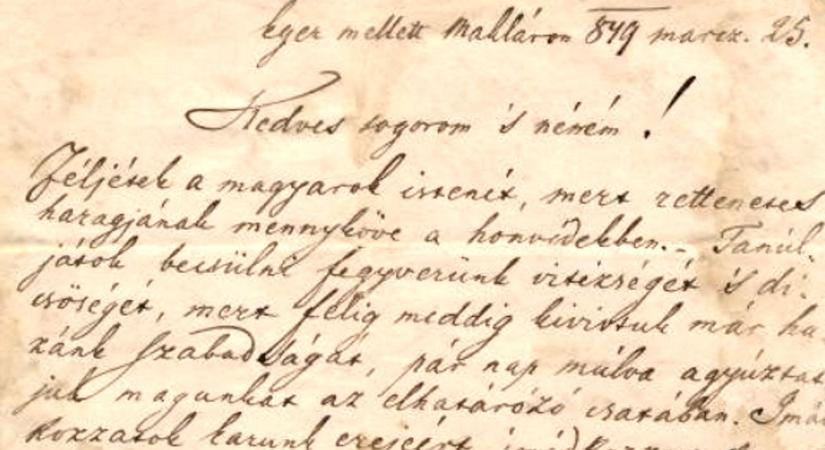 Eger mellett Makláron 849 marcz. 25.
Kedves sogorom 's néném!
Féljétek a magyarok istenét, mert rettenetes
haragjának mennyköve a honvédekben. - Tanúl-
játok becsülni fegyverünk vitézségét 's di-
csőségét, mert félig meddig kivívtuk már ha-
zánk szabadságát, pár nap múlva
juk magunkat az elhatározó csatában. Imád
kozzatok karunk erejéért